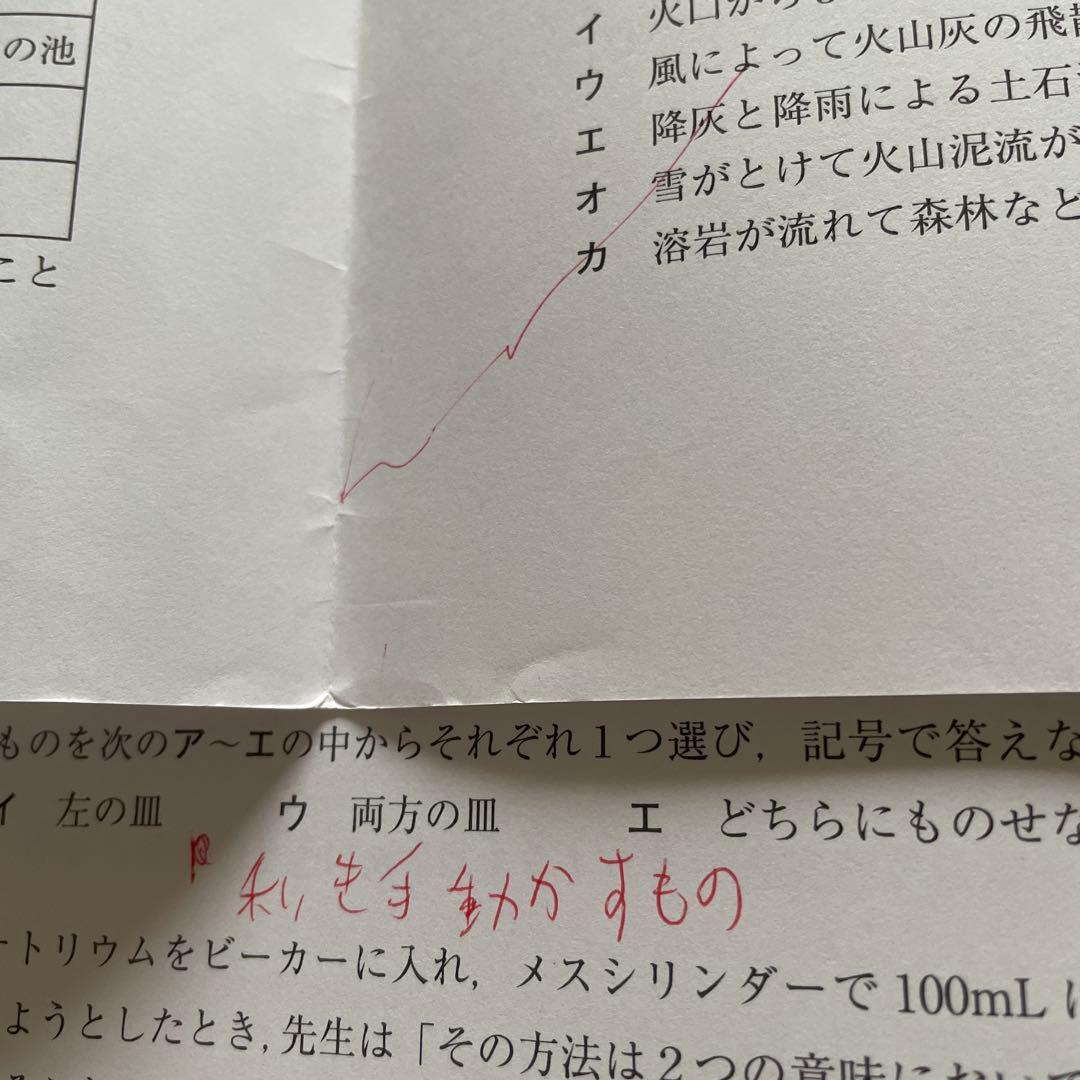 の池
こと
イ 火口から
ウ 風によって火山灰の飛散
エ 降灰と降雨による土石
オ 雪がとけて火山泥流が
カ 溶岩が流れて森林など
ものを次のア～エの中からそれぞれ1つ選び，記号で答えな
イ 左の皿 ウ 両方の皿 エ どちらにものせな
利き手動かすもの
トリウムをビーカーに入れ，メスシリンダーで100mL
ようとしたとき，先生は「その方法は2つの意味において